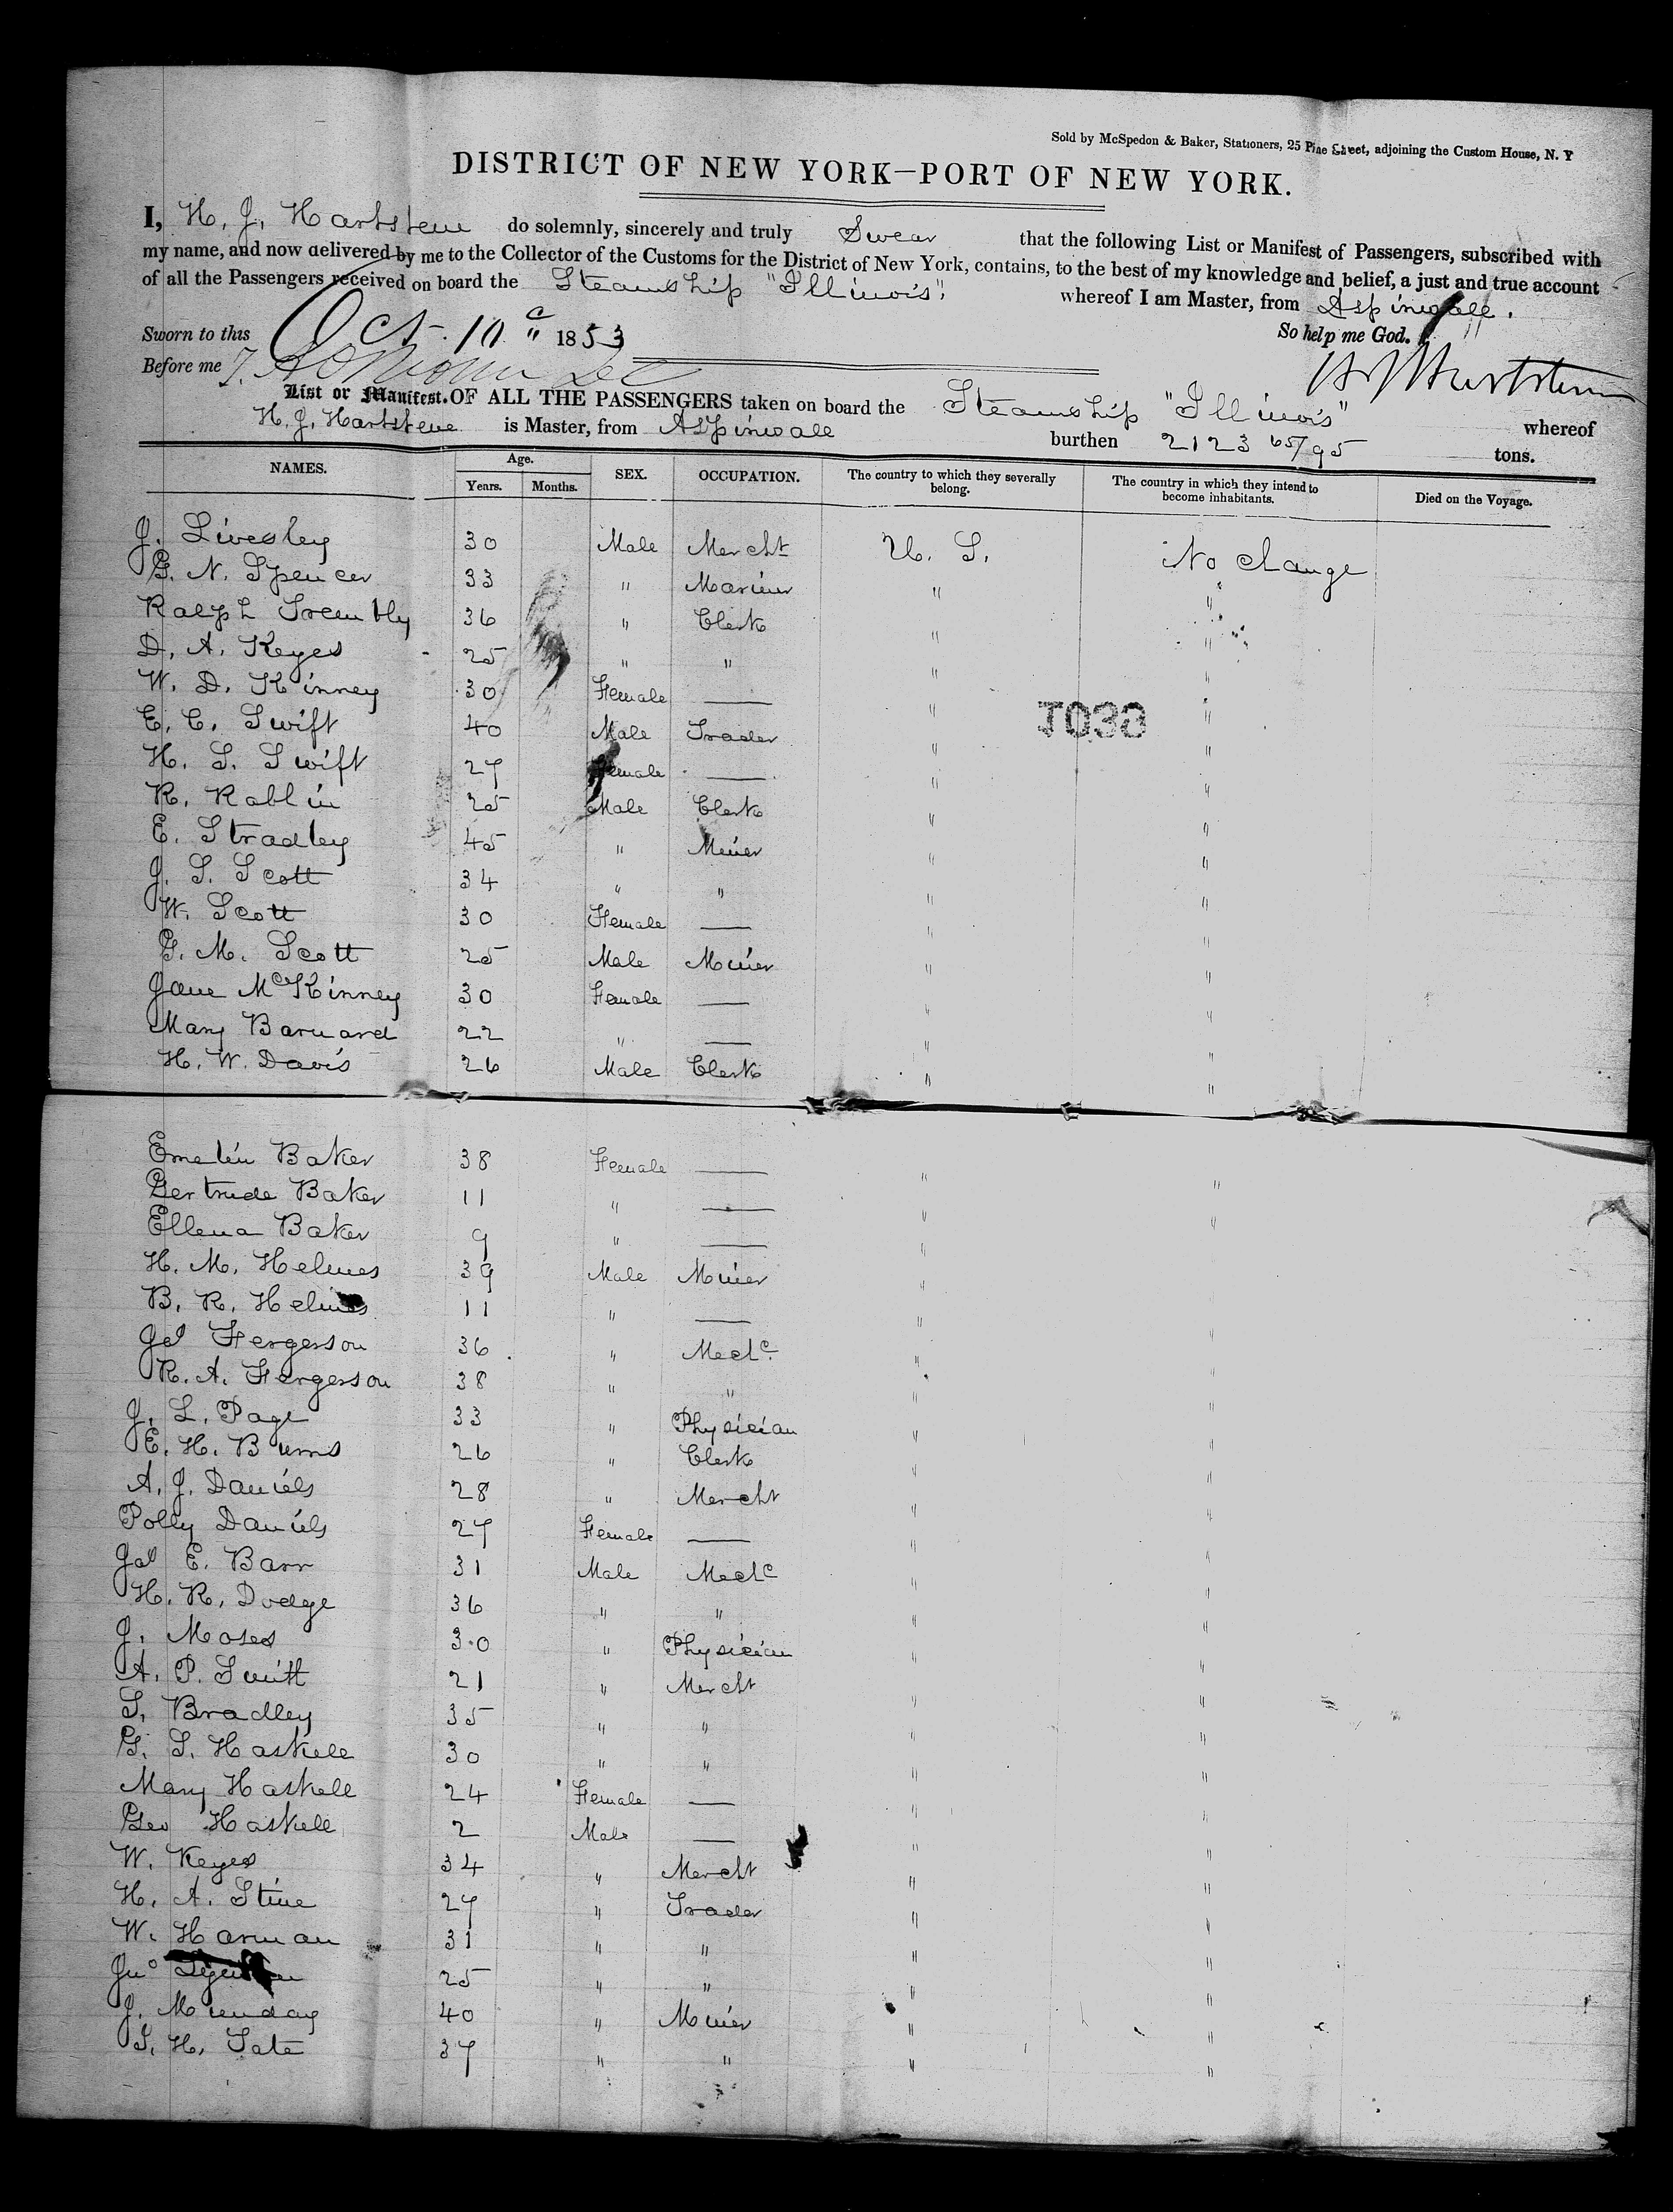 Sold by McSpedon & Baker, Stationers, 25 Pine Street, adjoining the Custom House, N. Y
DISTRICT OF NEW YORK—PORT OF NEW YORK.
I, H. J. Hartstene do solemnly, sincerely and truly Swear that the following List or Manifest of Passengers, subscribed with
my name, and now delivered by me to the Collector of the Customs for the District of New York, contains, to the best of my knowledge and belief, a just and true account
of all the Passengers received on board the Steamship "Illinois" whereof I am Master, from Aspinwall.
Sworn to this Oct. 10 " 1853 So help me God.
Before me
H J Hartstene
List or Manifest. OF ALL THE PASSENGERS taken on board the Steamship "Illinois" whereof
H. J. Hartstene is Master, from Aspinwall burthen 2123 65/95 tons.
NAMES. Age. Years. Months. SEX. OCCUPATION. The country to which they severally belong. The country in which they intend to become inhabitants. Died on the Voyage.
J. Livesley 30 Male Mercht U. S. No change
G. N. Spencer 33 " Mariner " "
Ralph Trembly 36 " Clerk " "
D. A. Keyes 25 " " " "
W. D. Kinney 30 Female — " "
E. C. Swift 40 Male Trader " "
1036
H. S. Swift 27 Female — " "
R. Rablin 25 Male Clerk " "
E. Stradley 45 " Miner " "
J. S. Scott 34 " " " "
W. Scott 30 Female — " "
G. M. Scott 25 Male Miner " "
Jane McKinney 30 Female — " "
Mary Barnard 22 " — " "
H. W. Davis 26 Male Clerk " "
Emelin Baker 38 Female — " "
Gertrude Baker 11 " — " "
Ellena Baker 9 " — " "
H. M. Helmes 39 Male Miner " "
B. R. Helmes 11 " — " "
Jas Fergerson 36 " Mechc " "
R. A. Fergerson 38 " " " "
J. L. Page 33 " Physician " "
E. H. Burns 26 " Clerk " "
A. J. Daniels 28 " Mercht " "
Polly Daniels 27 Female — " "
Jas E. Barr 31 Male Mechc " "
H. R. Dodge 36 " " " "
J. Moses 30 " Physician " "
A. P. Smith 21 " Mercht " "
S. Bradley 35 " " " "
G. S. Haskell 30 " " " "
Mary Haskell 24 Female — " "
Geo Haskell 2 Male — " "
W. Keyes 34 " Mercht " "
H. A. Stine 27 " Trader " "
W. Harman 31 " " " "
Jno 25 " " " "
J. Munday 40 " Miner " "
S. H. Tate 37 " " " "